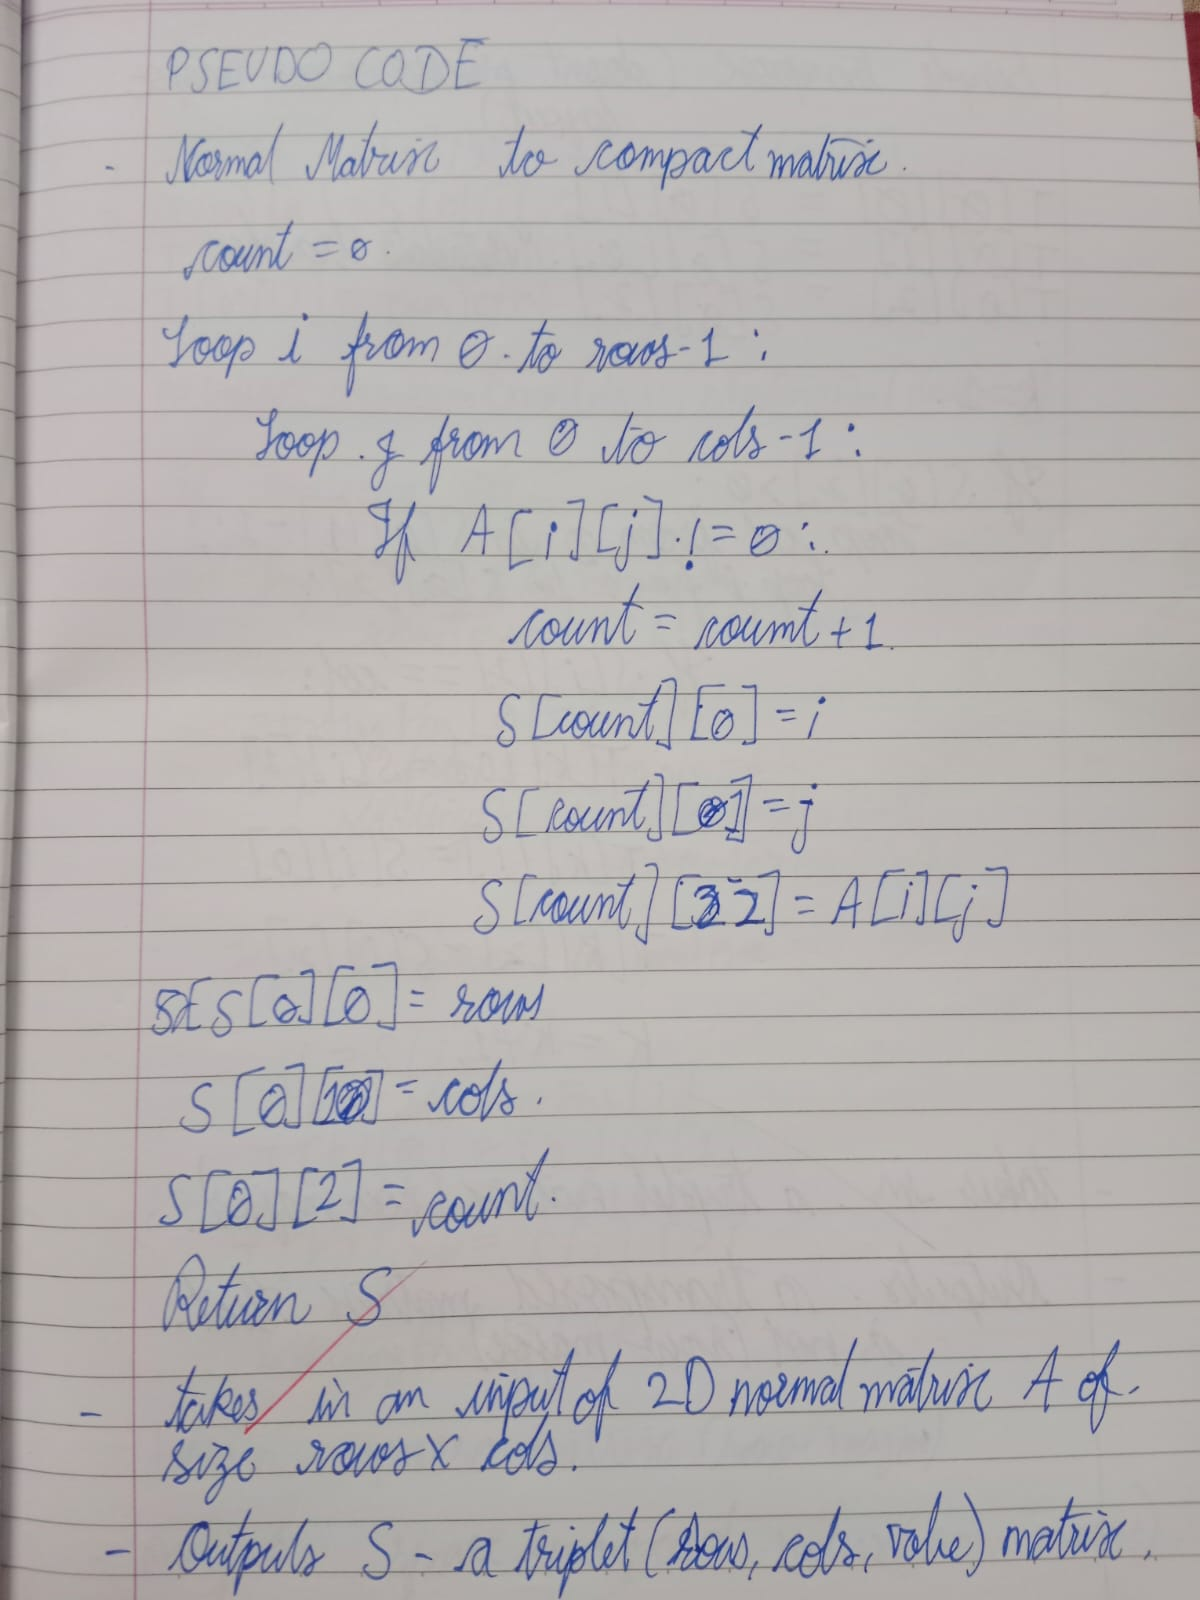 PSEUDO CODE
- Normal Matrix to compact matrix.
count = 0.
Loop i from 0 to rows-1 :
Loop j from 0 to cols-1 :
If A[i][j] != 0 :
count = count + 1.
S[count][0] = i
S[count][1] = j
S[count][2] = A[i][j]
S[0][0] = rows
S[0][1] = cols.
S[0][2] = count.
Return S
- takes in an input of 2D normal matrix A of.
size rows x cols.
- Outputs S - a triplet (Rows, cols, value) matrix.